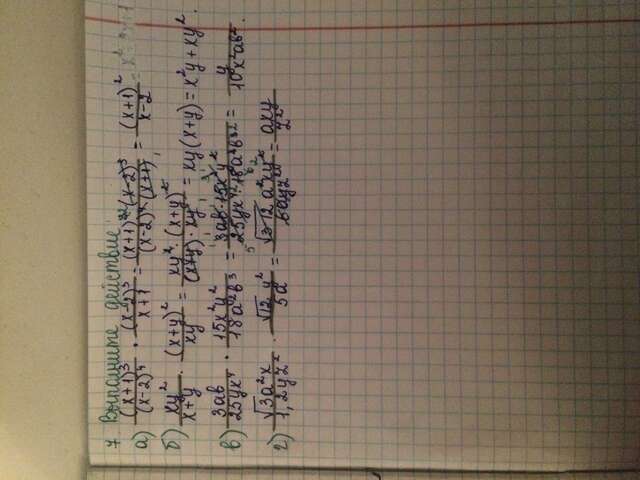 7 Выполните действие
а) (x+1)³/(x-2)⁴ · (x-2)³/x+1 = (x+1)³²(x-2)³/(x-2)⁴(x+1) = (x+1)²/x-2
б) xy²/x+y · (x+y)²/xy = xy²·(x+y)²/(x+y)·xy = xy(x+y) = x²y + xy²
в) 3ab/25yx⁴ · 15x²y²/18a²b³ = 3ab·15x²y²/25yx⁴·18a²b³ = y/10x²ab²
г) √3a²x/1,2yz² · √12y²/5a = √3·12a²xy²/6ayz² = axy/z²